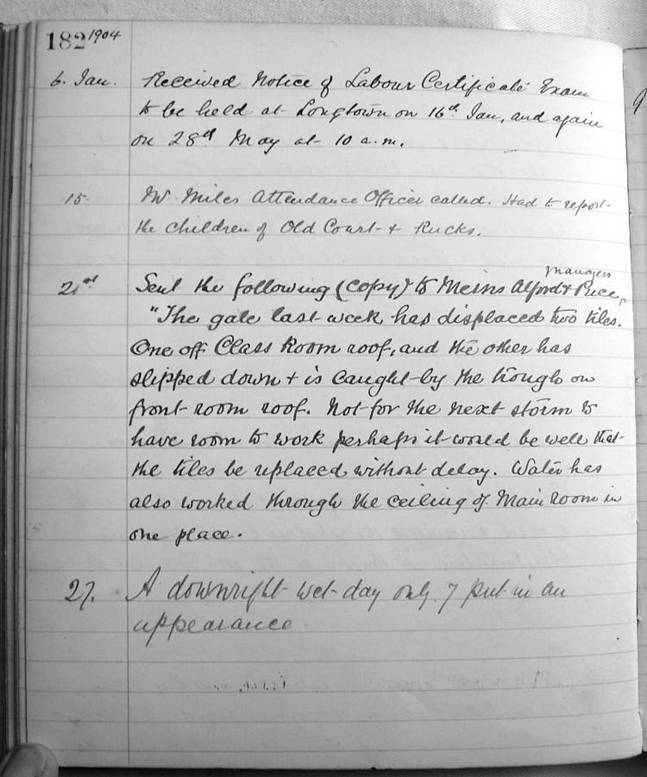 182 1904
6. Jan. Received Notice of Labour Certificate Exam
to be held at Longtown on 16th Jan, and again
on 28th May at 10 a.m.
15. Mr. Miles Attendance Officer called. Had to report
the children of Old Court + Rucks.
managers
21st Sent the following (copy) to Messrs Alford + Price,
"The gale last week has displaced two tiles.
One off Class Room roof, and the other has
slipped down + is caught by the trough on
front room roof. Not for the next storm to
have room to work perhaps it would be well that
the tiles be replaced without delay. Water has
also worked through the ceiling of Main room in
one place.
27. A downright wet day only 7 put in an
appearance